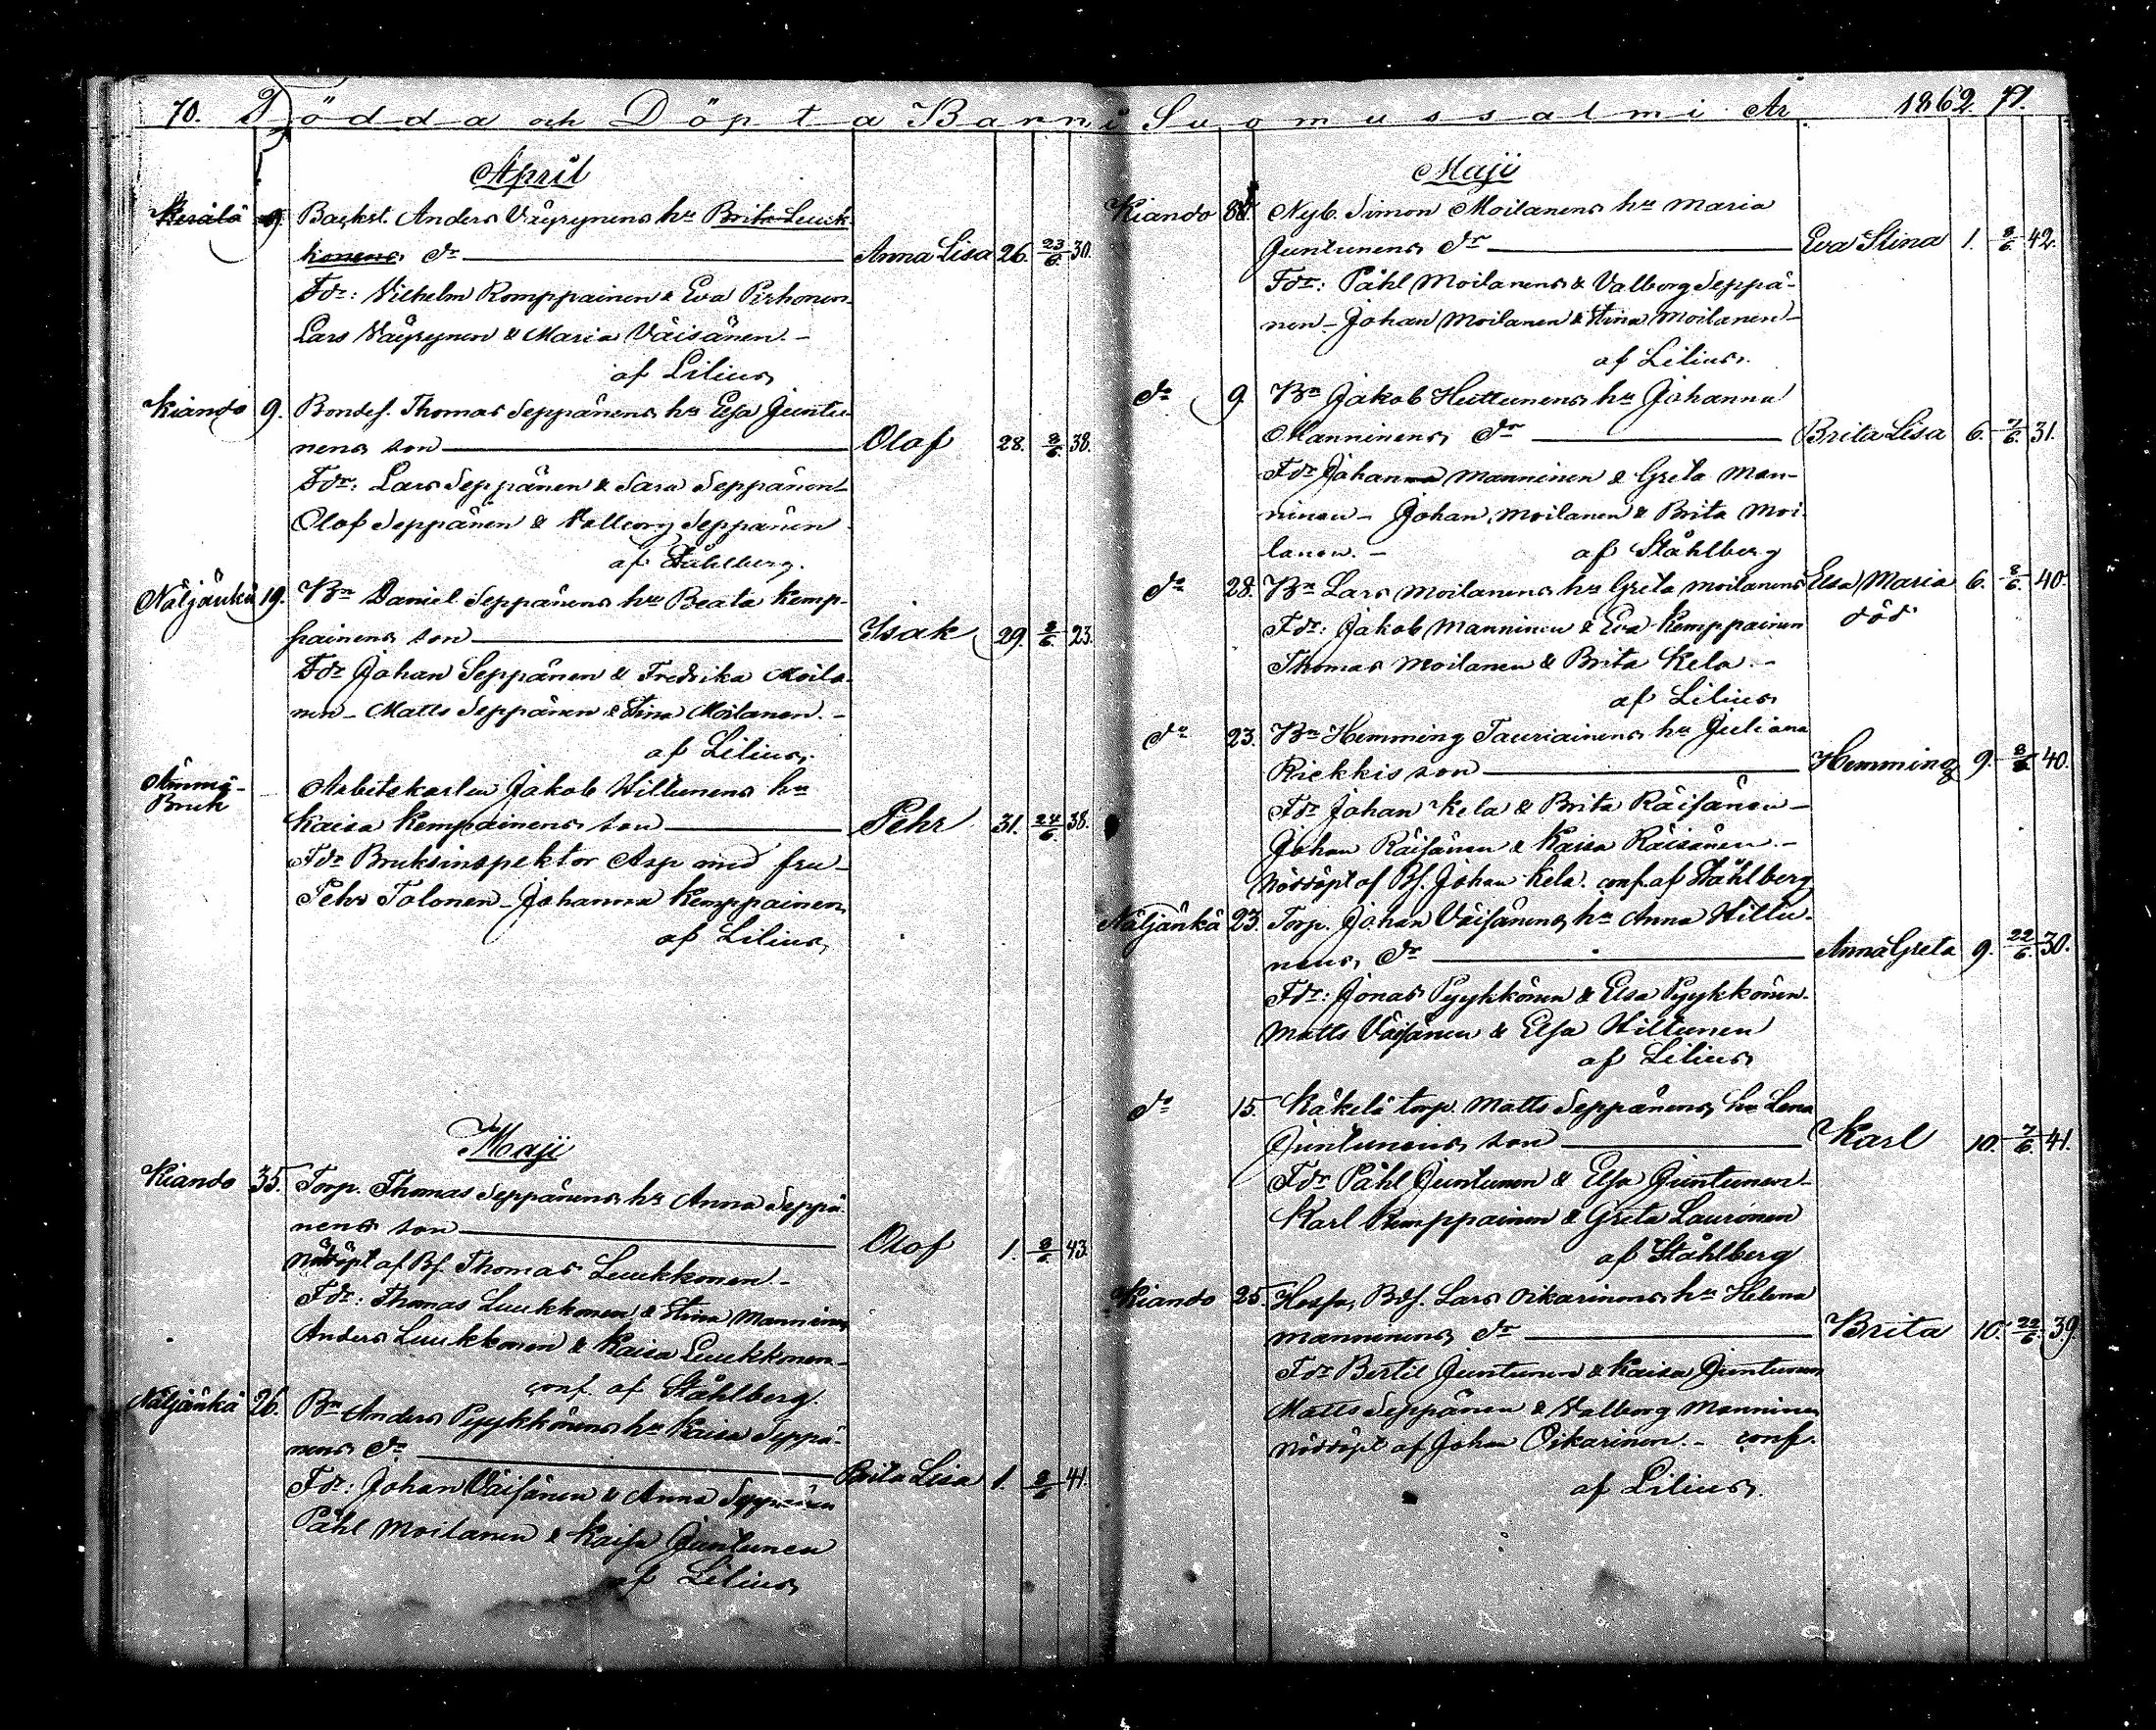 70. Födda och Döpta Barn i Suomussalmi År 1862. 71.
April
Kerälä 9. Backst. Anders Väyrynens hu Brita Luuk-
konens dr Anna Lisa 26. 23/6. 30.
Fdr: Vilhelm Romppainen & Eva Pirhonen
Lars Väyrynen & Maria Väisänen. -
af Lilius,
Kiando 9. Bondes. Thomas Seppänens hu Elsa Juntu-
nens son Olof 28. 8/6. 38.
Fdr: Lars Seppänen & Sara Seppänen -
Olof Seppänen & Valborg Seppänen
af Ståhlberg.
Näljänkä 19. Bn Daniel Seppänens hu Beata Kemp-
painens son Isak 29. 8/6. 23.
Fdr Johan Seppänen & Fredrika Moila-
nen - Matts Seppänen & Stina Moilanen. -
af Lilius,
Ämmä-
Bruk
Arbetskarlen Jakob Hiltunens hu
Kaisa Kempainens son Pehr 31. 24/6. 38.
Fdr Bruksinspektor Asp med fru -
Pehr Tolonen - Johanna Kemppainen,
af Lilius,
Maji
Kiando 35. Torp. Thomas Seppänens hu Anna Seppä-
nens son Olof 1. 8/6. 43.
Nöddöpt af Bf. Thomas Luukkonen. -
Fdr: Thomas Luukkonen & Stina Manninen
Anders Luukkonen & Kaisa Luukkonen -
conf. af Ståhlberg.
Näljänkä 26. Bn Anders Pyykkönens hu Kaisa Seppä-
nens dr Brita Lisa 1. 8/6. 41.
Fdr: Johan Väisänen & Anna Seppänen
Påhl Moilanen & Kaisa Juntunen
af Lilius,
Maji
Kiando Nyb. Simon Moilanens hu Maria
Juntunens dr Eva Stina 1. 8/6. 42.
Fdr: Påhl Moilanen & Valborg Seppä-
nen - Johan Moilanen & Stina Moilanen -
af Lilius.
do 9 Bn Jakob Huttunens hu Johanna
Manninens dr Brita Lisa 6. 7/6. 31.
Fdr Johan Manninen & Greta Man-
ninen - Johan Moilanen & Brita Moi-
lanen. - af Ståhlberg
do 28. Bn Lars Moilanens hu Greta Moilanens Elsa Maria 6. 8/6. 40.
Fdr: Jakob Manninen & Eva Kemppainen död
Thomas Moilanen & Brita Kela. -
af Lilius
do 23. Bn Hemming Tauriainens hu Juliana
Riekkis son Hemming 9. 8/6 40.
Fdr Johan Kela & Brita Räisänen -
Johan Räisänen & Kaisa Räisänen. -
Nöddöpt af Bf. Johan Kela. conf. af Ståhlberg
Näljänkä 23. Torp. Johan Väisänens hu Anna Hiltu-
nens, dr Anna Greta 9. 22/6. 30.
Fdr: Jonas Pyykkönen & Elsa Pyykkönen.
Matts Väisänen & Elsa Hiltunen
af Lilius,
do 15. Käkelä torp. Matts Seppänens, hu Lena
Juntunens son Karl 10. 7/6. 41.
Fdr Påhl Juntunen & Elsa Juntunen -
Karl Kemppainen & Greta Lauronen
af Ståhlberg
Kiando 25. Bdf. Lars Oikarinens hu Helena
Manninens dr Brita 10. 22/6. 39.
Fdr Bertil Juntunen & Kaisa Juntunen
Matts Seppänen & Valborg Manninen
Nöddöpt af Johan Oikarinen. - conf.
af Lilius,